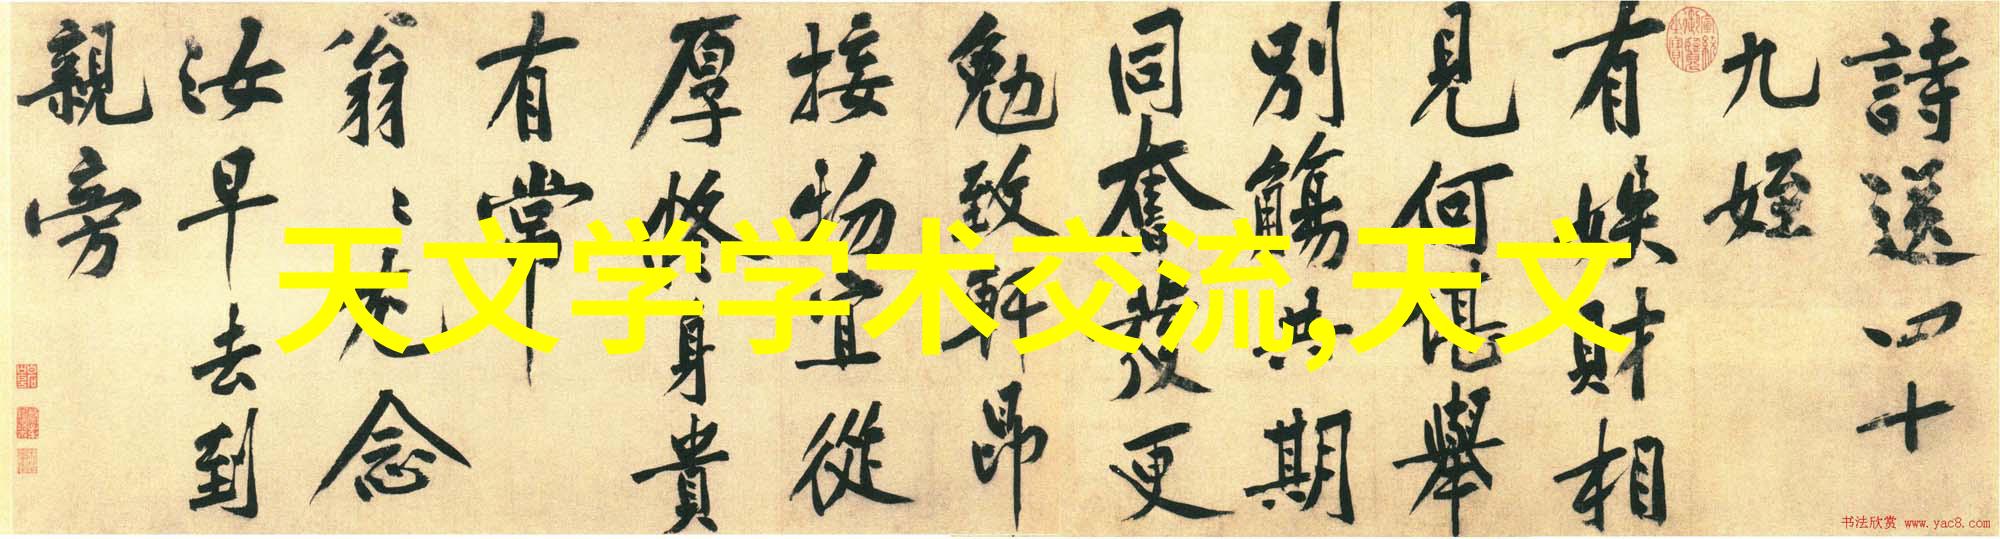 詩送四十
九姪
有財相
見何堪舉
別觴共期
同奮發更
勉致軒昂
接物宜從
厚修身貴
有常
翁〻尤念
汝早去到
親旁
天文学学术交流,天文
书法欣赏 www.yac8.com